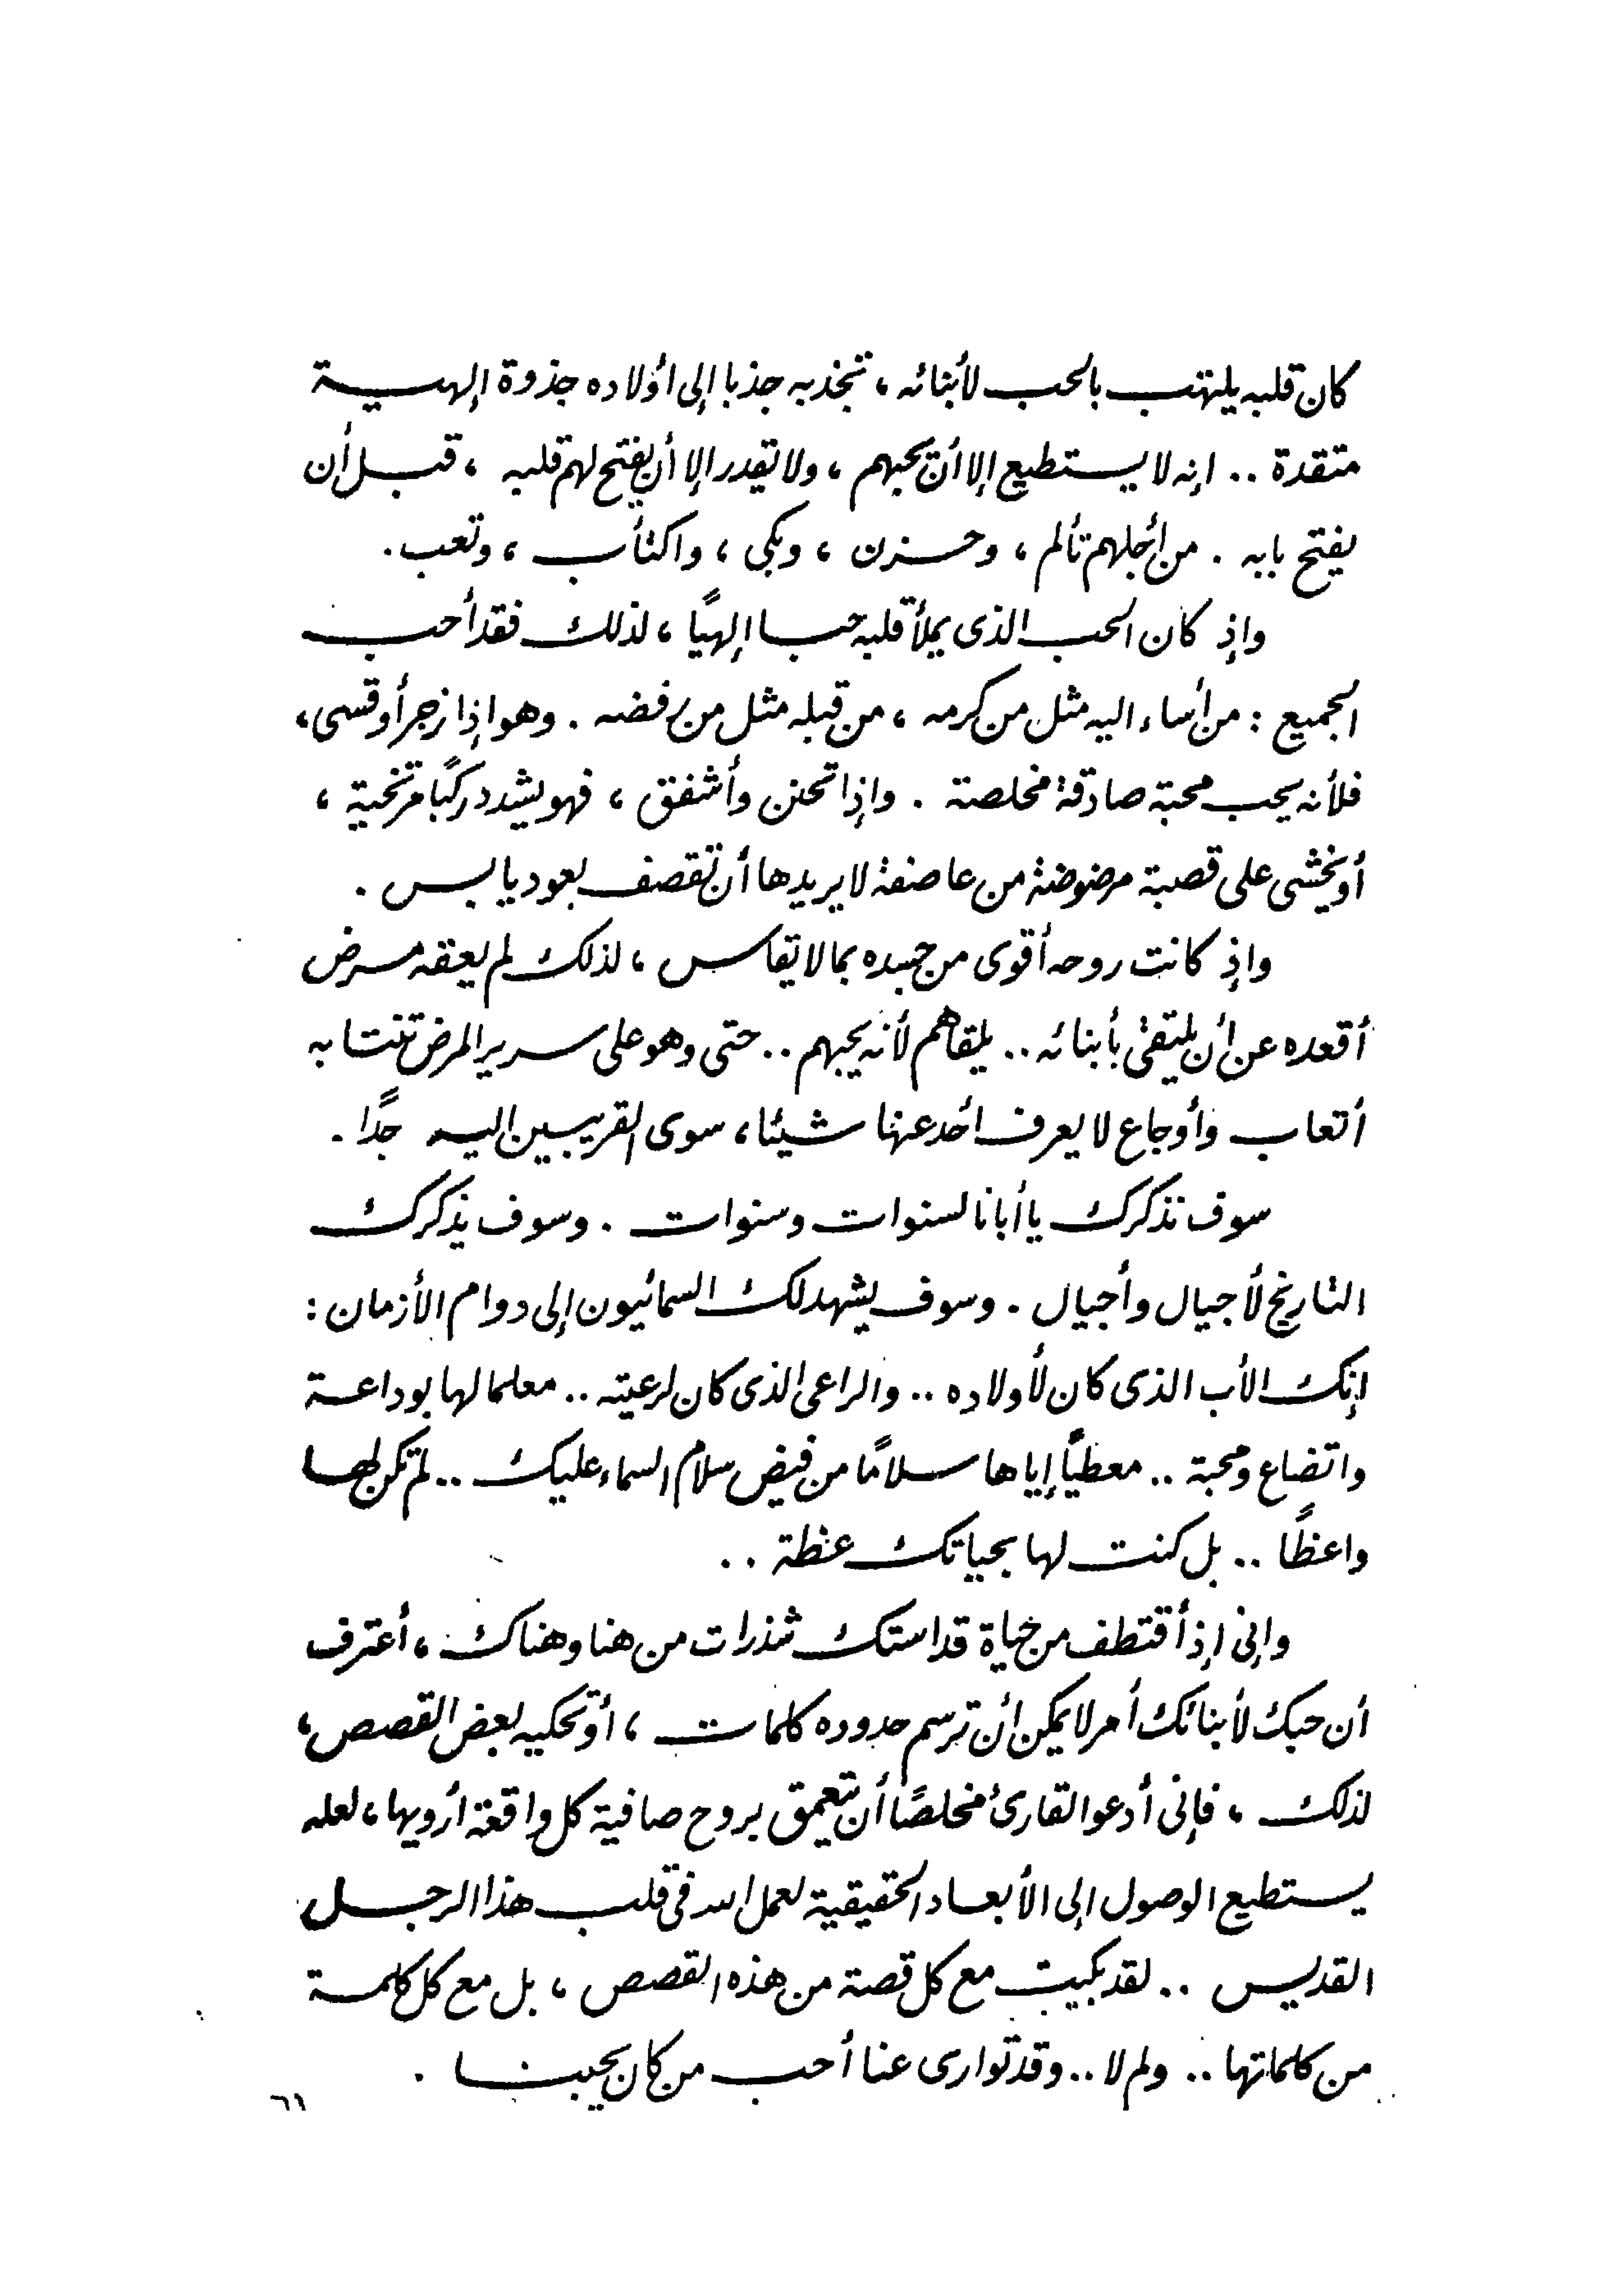 كان قلبه يلتهب بالحب لأبنائه ، تجذبه جذبا إلى أولاده جذوة إلهية
متقدة .. انه لا يستطيع إلا أن يحبهم ، ولا يقدر إلا أن يفتح لهم قلبه ، قبل أن
يفتح بابه . من أجلهم تألم ، وحزن ، وبكى ، واكتأب ، وتعب .
وإذ كان الحب الذى يملأ قلبه حبا إلهيًا ، لذلك فقد أحب
الجميع : من أساء اليه مثل من كرمه ، من قبله مثل من رفضه . وهو إذا زجر أو قسى ،
فلأنه يحب محبة صادقة مخلصة . وإذا تحنن وأشفق ، فهو يشدد ركبًا مرتخية ،
أو يخشى على قصبة مرضوضة من عاصفة لا يريدها أن تقصف بعود يابس .
وإذ كانت روحه أقوى من جسده بما لا يقاس ، لذلك لم يعقه مرض
أقعده عن أن يلتقى بأبنائه .. يلقاهم لأنه يحبهم .. حتى وهو على سرير المرض تنتابه
أتعاب وأوجاع لا يعرف أحد عنها شيئا ، سوى القريبين اليه جدًا .
سوف نذكرك يا أبانا لسنوات وسنوات . وسوف يذكرك
التاريخ لأجيال وأجيال . وسوف يشهد لك السمائيون إلى دوام الأزمان :
إنك الأب الذى كان لأولاده .. والراعى الذى كان لرعيته .. معلما لها بوداعة
واتضاع ومحبة .. معطيًا إياها سلامًا من فيض سلام السماء عليك .. لم تكن لها
واعظًا .. بل كنت لها بحياتك عظة ..
وإنى إذ أقتطف من حياة قداستك شذرات من هنا وهناك ، أعترف
أن حبك لأبنائك أمر لا يمكن أن ترسم حدوده كلمات ، أو تحكيه بعض القصص ،
لذلك ، فإنى أدعو القارئ مخلصًا أن يتعمق بروح صافية كل واقعة أرويها ، لعله
يستطيع الوصول إلى الأبعاد الحقيقية لعمل الله فى قلب هذا الرجل
القديس .. لقد بكيت مع كل قصة من هذه القصص ، بل مع كل كلمة
من كلماتها .. ولم لا .. وقد توارى عنا أحب من كان يحبنا .
٦١